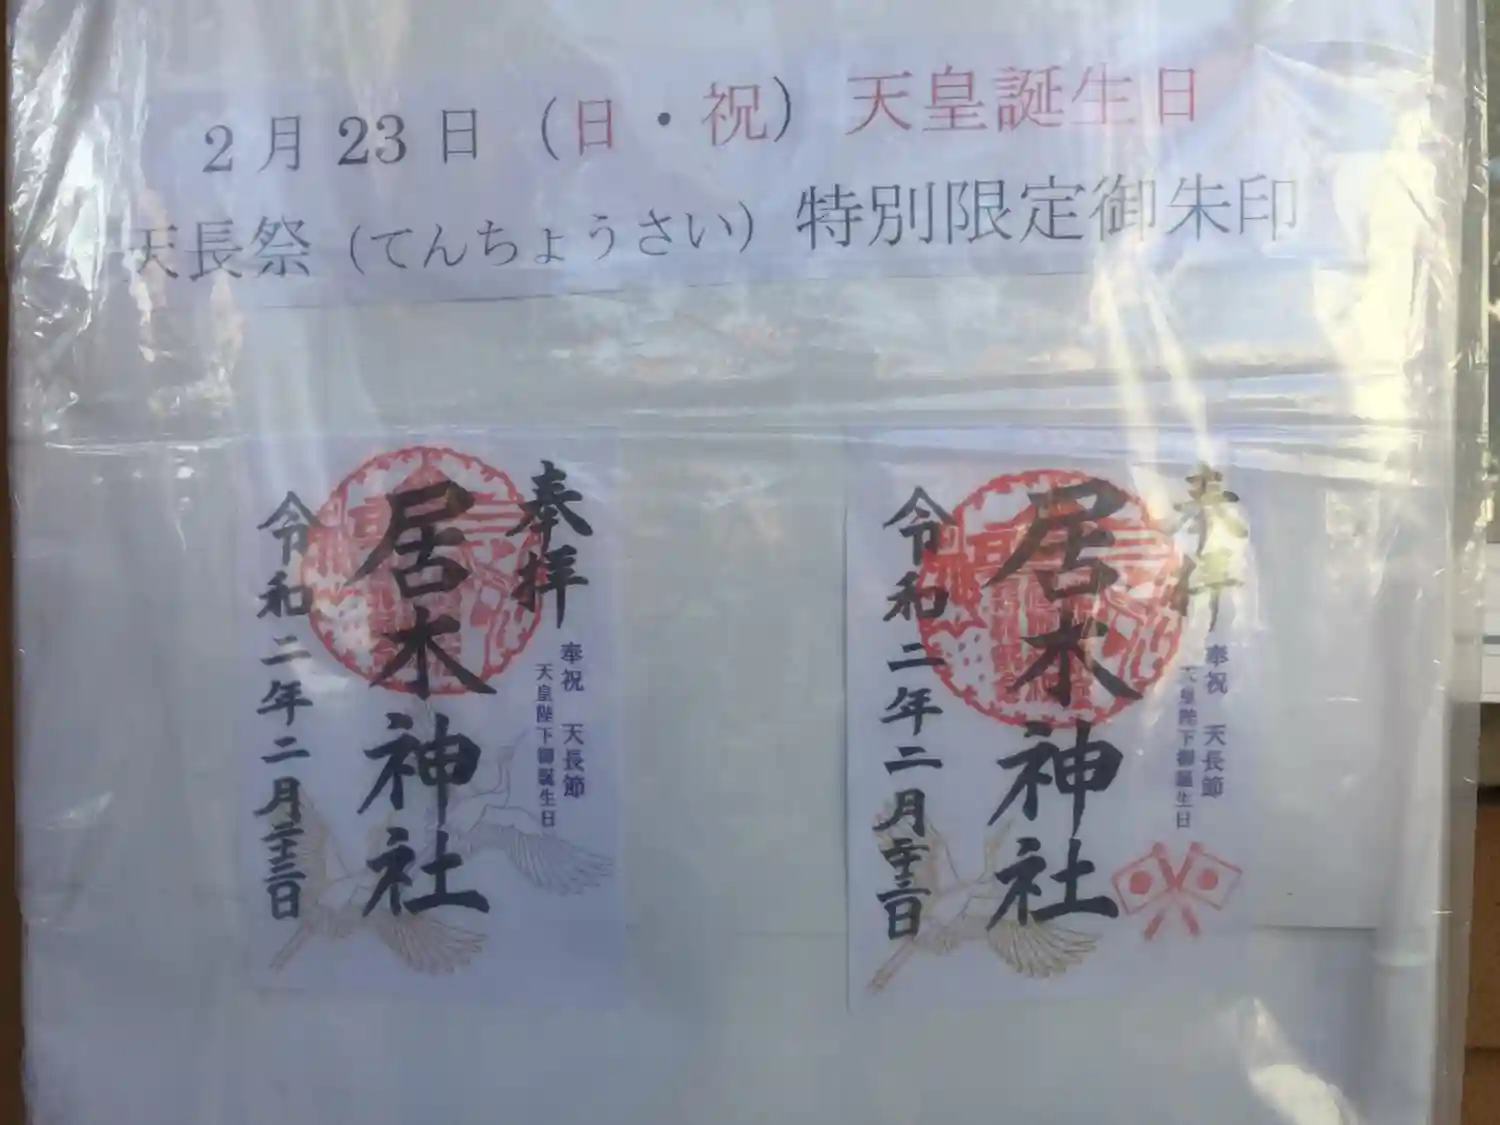 2月23日（日・祝）天皇誕生日
天長祭（てんちょうさい）特別限定御朱印
奉拝
奉祝 天長節
天皇陛下御誕生日
居木神社
令和二年二月二十三日
奉拝
奉祝 天長節
天皇陛下御誕生日
居木神社
令和二年二月二十三日